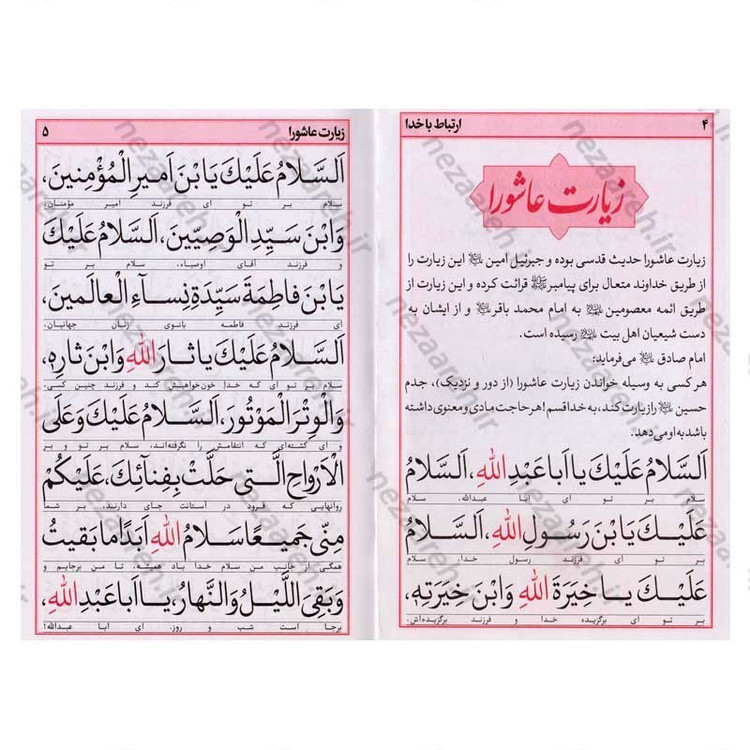 ۴
ارتباط با خدا
زیارت عاشورا
زیارت عاشورا حدیث قدسی بوده و جبرئیل امین این زیارت را
از طریق خداوند متعال برای پیامبرﷺ قرائت کرده و این زیارت از
طریق ائمه معصومین به امام محمد باقر و از ایشان به
دست شیعیان اهل بیت رسیده است.
امام صادق می‌فرماید:
هر کسی به وسیله خواندن زیارت عاشورا (از دور و نزدیک)، جدم
حسین را زیارت کند، به خدا قسم! هر حاجت مادی و معنوی داشته
باشد به او می‌دهد.
اَلسَّلامُ عَلَیْكَ یا اَبا عَبْدِ اللهِ، اَلسَّلامُ
سلام بر تو ای ابا عبدالله. سلام
عَلَیْـكَ یَا بْنَ رَسُـولِ اللهِ، اَلسَّـلامُ
بر تو ای فرزند رسول خدا، سلام
عَلَیْكَ یـا خِیَرَةَ اللهِ وَابْنَ خِیَرَتِهِ،
بر تو ای برگزیده خدا و فرزند برگزیده‌اش.
زیارت عاشورا
۵
اَلسَّلامُ عَلَیْكَ یَا بْنَ اَمیرِ الْمُؤْمِنینَ،
سلام بر تو ای فرزند امیر مؤمنان،
وَابْنَ سَیِّدِ الْوَصِیّینَ، اَلسَّلامُ عَلَیْكَ
و فرزند آقای اوصیاء. سلام بر تو
یَا بْنَ فاطِمَةَ سَیِّدَةِ نِسـآءِ الْعالَمینَ،
ای فرزند فاطمه بانوی زنان جهانیان.
اَلسَّلامُ عَلَیْكَ یا ثارَ اللهِ وَابْنَ ثارِهِ،
سلام بر تو ای که خدا خون‌خواهیش کند و فرزند چنین کسی.
وَالْوِتْرَ الْمَوْتُورَ، اَلسَّلامُ عَلَیْكَ وَعَلَی
و ای کشته‌ای که انتقامش را نگرفته‌اند، سلام بر تو و بر
الْاَرْواحِ الَّتی حَلَّتْ بِفِنآئِكَ، عَلَیْکُمْ
روانهایی که فرود در آستانت جای دارند، بر شما
مِنّی جَمیـعًا سَلامُ اللهِ اَبَدًا ما بَقیتُ
همگی از جانب من سلام خدا باد همیشه. تا من برجایم و
وَبَقِیَ اللَّیْـلُ وَالنَّهارُ، یـا اَبا عَبْدِ اللهِ،
برجا است شب و روز. ای ابا عبدالله!
nezaareh.ir